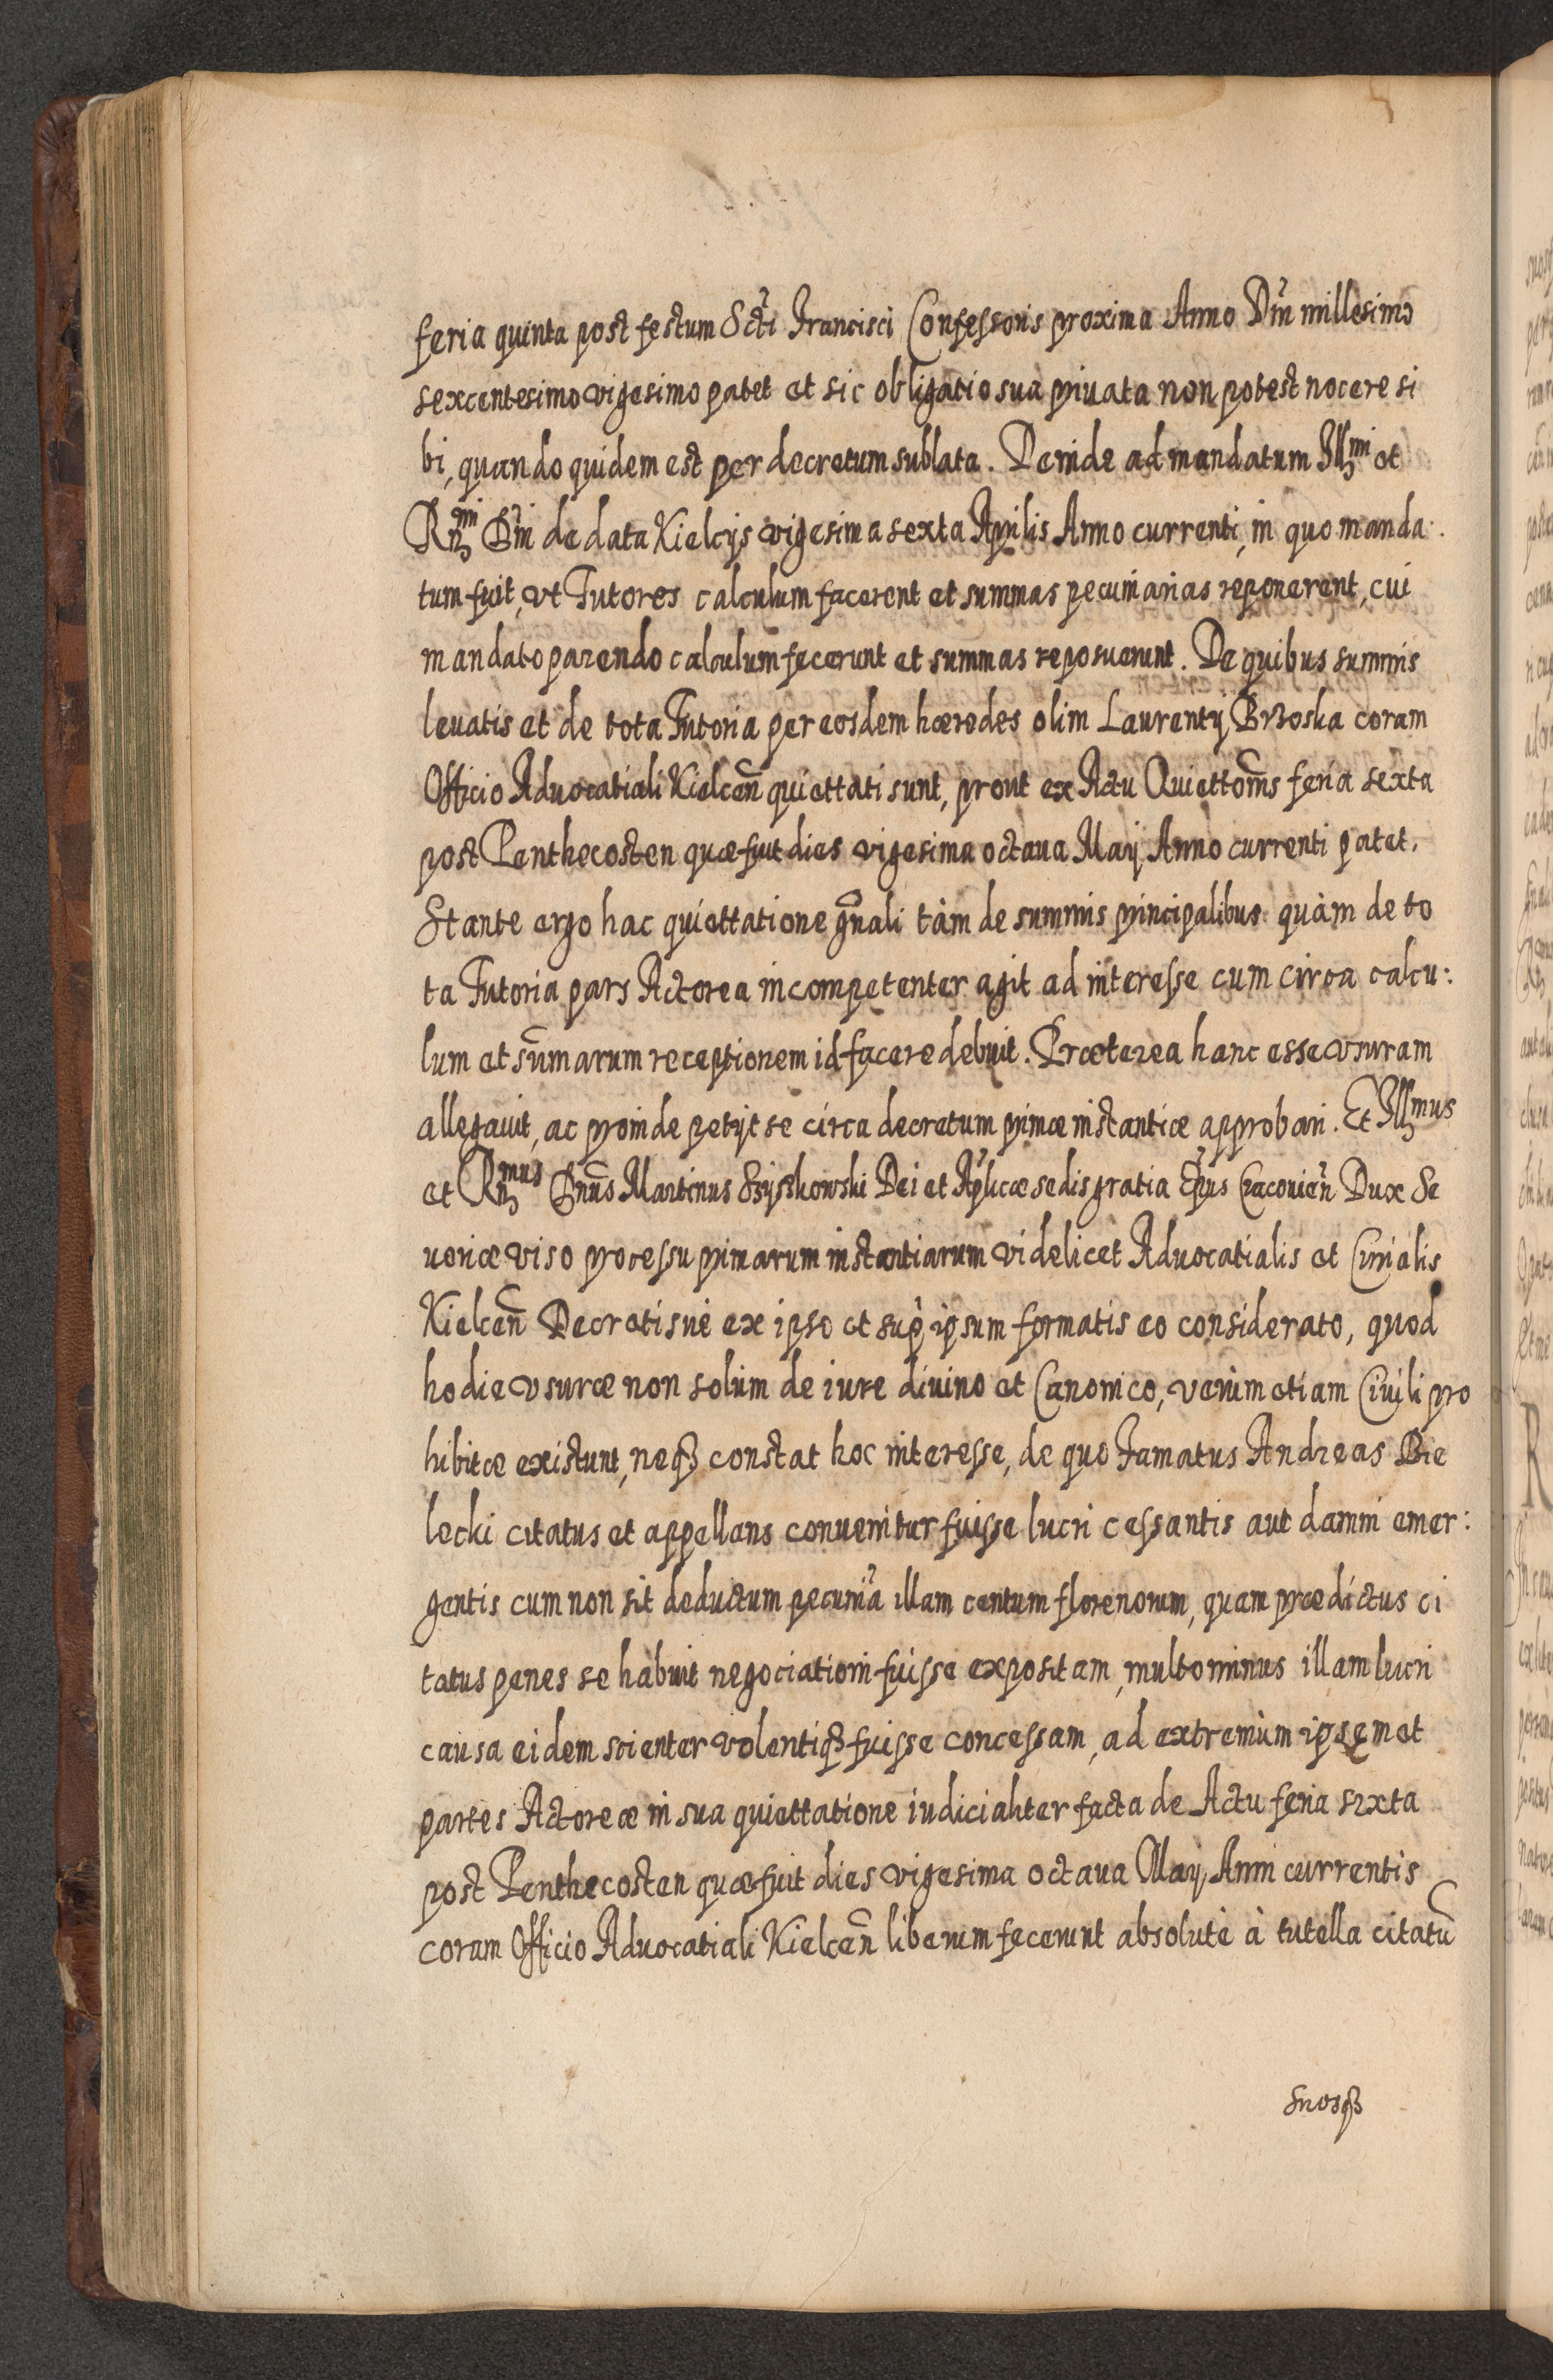 feria quinta post festum Scti Francisci Confessoris proxima Anno Dni millesimo
sexcentesimo vigesimo patet et sic obligatio sua priuata non potest nocere si
bi, quando quidem est per decretum sublata. Deinde ad mandatum Illmi et
Rmi Dni de data Kielcijs vigesima sexta Aprilis Anno currenti, in quo manda:
tum fuit, vt Tutores calculum facerent et summas pecuniarias reponerent, cui
mandato parendo calculum fecerunt et summas reposuerunt. De quibus summis
leuatis et de tota Tutoria per eosdem hæredes olim Laurentij Brzoska coram
Officio Aduocatiali Kielcen̄ quiettati sunt, prout ex Actu Quiettoīns feria sexta
post Penthecosten quæ fuit dies vigesima octaua Maij Anno currenti patet.
Stante ergo hac quiettatione gn̄ali tàm de summis principalibus quàm de to
ta Tutoria pars Actorea incompetenter agit ad interesse cum circa calcu:
lum et sum̄arum receptionem id facere debuit. Præterea hanc esse vsuram
allegauit, ac proinde petijt se circa decretum primæ instantiæ approbari. Et Illmus
et Rmus Dnūs Martinus Szyszkowski Dei et Aplicæ sedis gratia Epus Cracouien̄ Dux Se
ueriæ viso processu primarum instantiarum videlicet Aduocatialis et Curialis
Kielcen̄ Decretisue ex ipso et sup ipsum formatis eo considerato, quod
hodie vsuræ non solùm de iure diuino et Canonico, verùm etiam Ciuili pro
hibitæ existunt, neqꝫ constat hoc interesse, de quo Famatus Andreas Bie
lecki citatus et appellans conuenitur fuisse lucri cessantis aut damni emer:
gentis cum non sit deductum pecunia illam centum florenorum, quam prædictus ci
tatus penes se habuit negociationi fuisse expositam, multo minus illam lucri
causa eidem scienter volentiqꝫ fuisse concessam, ad extremùm ipsęmet
partes Actoreæ in sua quiettatione iudicialiter facta de Actu feria sexta
post Penthecosten quæ fuit dies vigesima octaua Maij Anni currentis
coram Officio Aduocatiali Kielcen̄ liberum fecerunt absolutè à tutella citatū
suosqꝫ